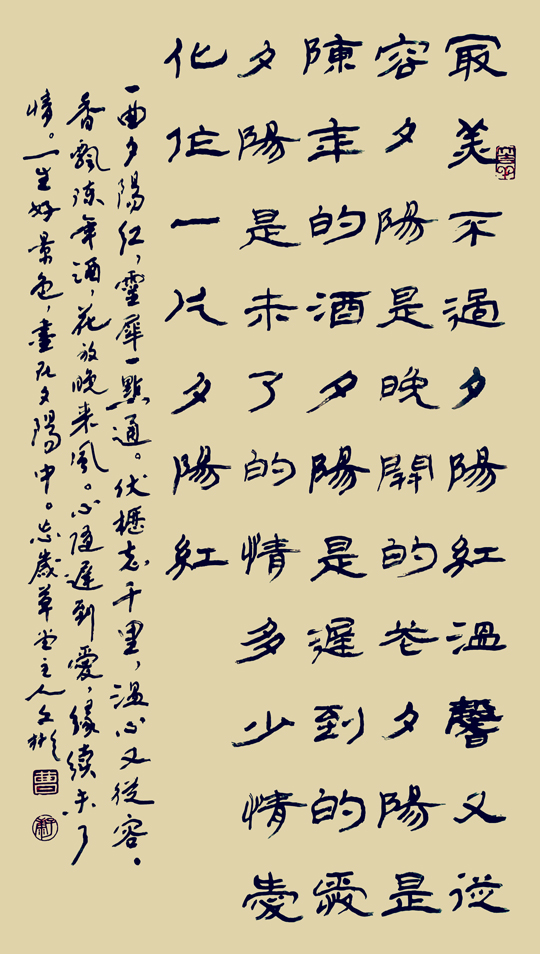 最美不過夕陽紅溫馨又從
容夕陽是晚開的花夕陽是
陳年的酒夕陽是遲到的愛
夕陽是未了的情多少情愛
化作一片夕陽紅
一曲夕陽紅，靈犀一點通。伏櫪志千里，溫心又從容。
香飄陳年酒，花放晚來風。心隨遲到愛，緣續未了
情。一生好景色，盡在夕陽中。忘歲草堂主人文